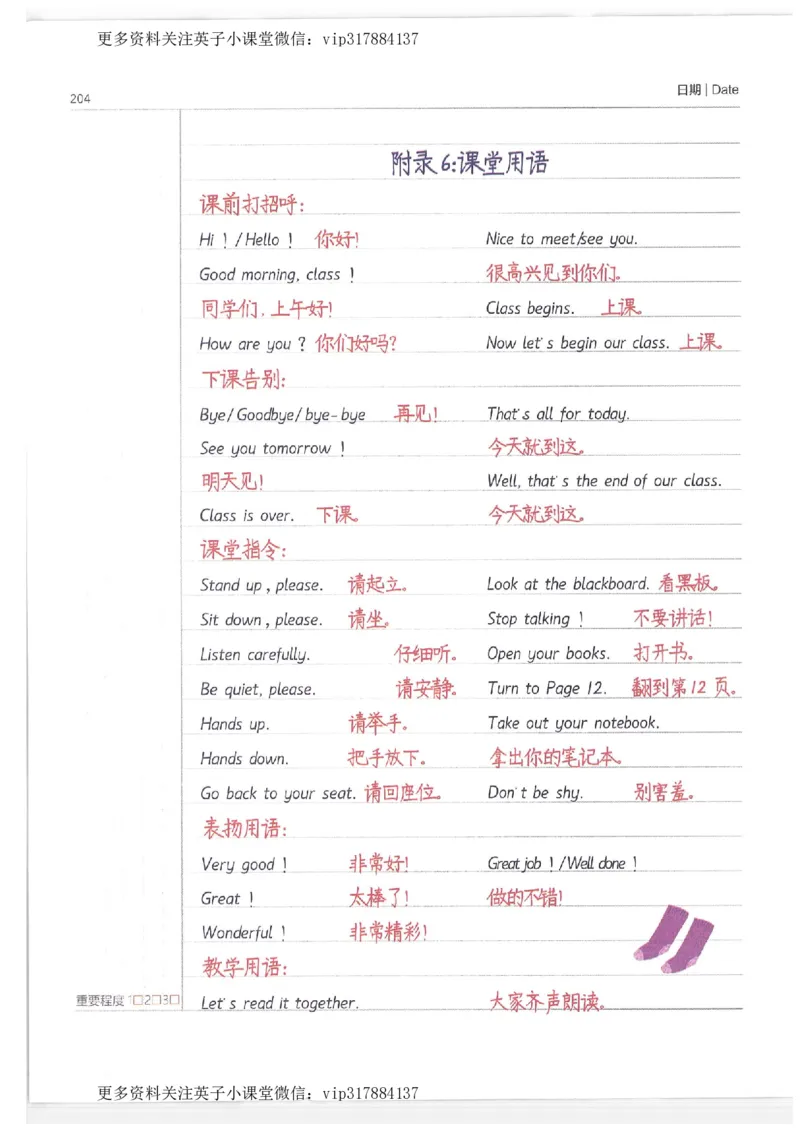 更多资料关注英子小课堂微信：vip317884137
204
日期 | Date
附录6:课堂用语
课前打招呼:
Hi！/Hello！ 你好!
Good morning, class！
同学们,上午好!
How are you？你们好吗?
Nice to meet/see you.
很高兴见到你们。
Class begins. 上课。
Now let's begin our class. 上课。
下课告别:
Bye/Goodbye/bye-bye 再见!
See you tomorrow！
明天见!
Class is over. 下课。
That's all for today.
今天就到这。
Well, that's the end of our class.
今天就到这。
课堂指令:
Stand up, please. 请起立。
Sit down, please. 请坐。
Listen carefully. 仔细听。
Be quiet, please. 请安静。
Hands up. 请举手。
Hands down. 把手放下。
Go back to your seat. 请回座位。
Look at the blackboard. 看黑板。
Stop talking！ 不要讲话!
Open your books. 打开书。
Turn to Page 12. 翻到第12页。
Take out your notebook.
拿出你的笔记本。
Don't be shy. 别害羞。
表扬用语:
Very good！ 非常好!
Great！ 太棒了!
Wonderful！ 非常精彩!
Great job！/Well done！
做的不错!
教学用语:
Let's read it together. 大家齐声朗读。
重要程度 1□2□3□
更多资料关注英子小课堂微信：vip317884137